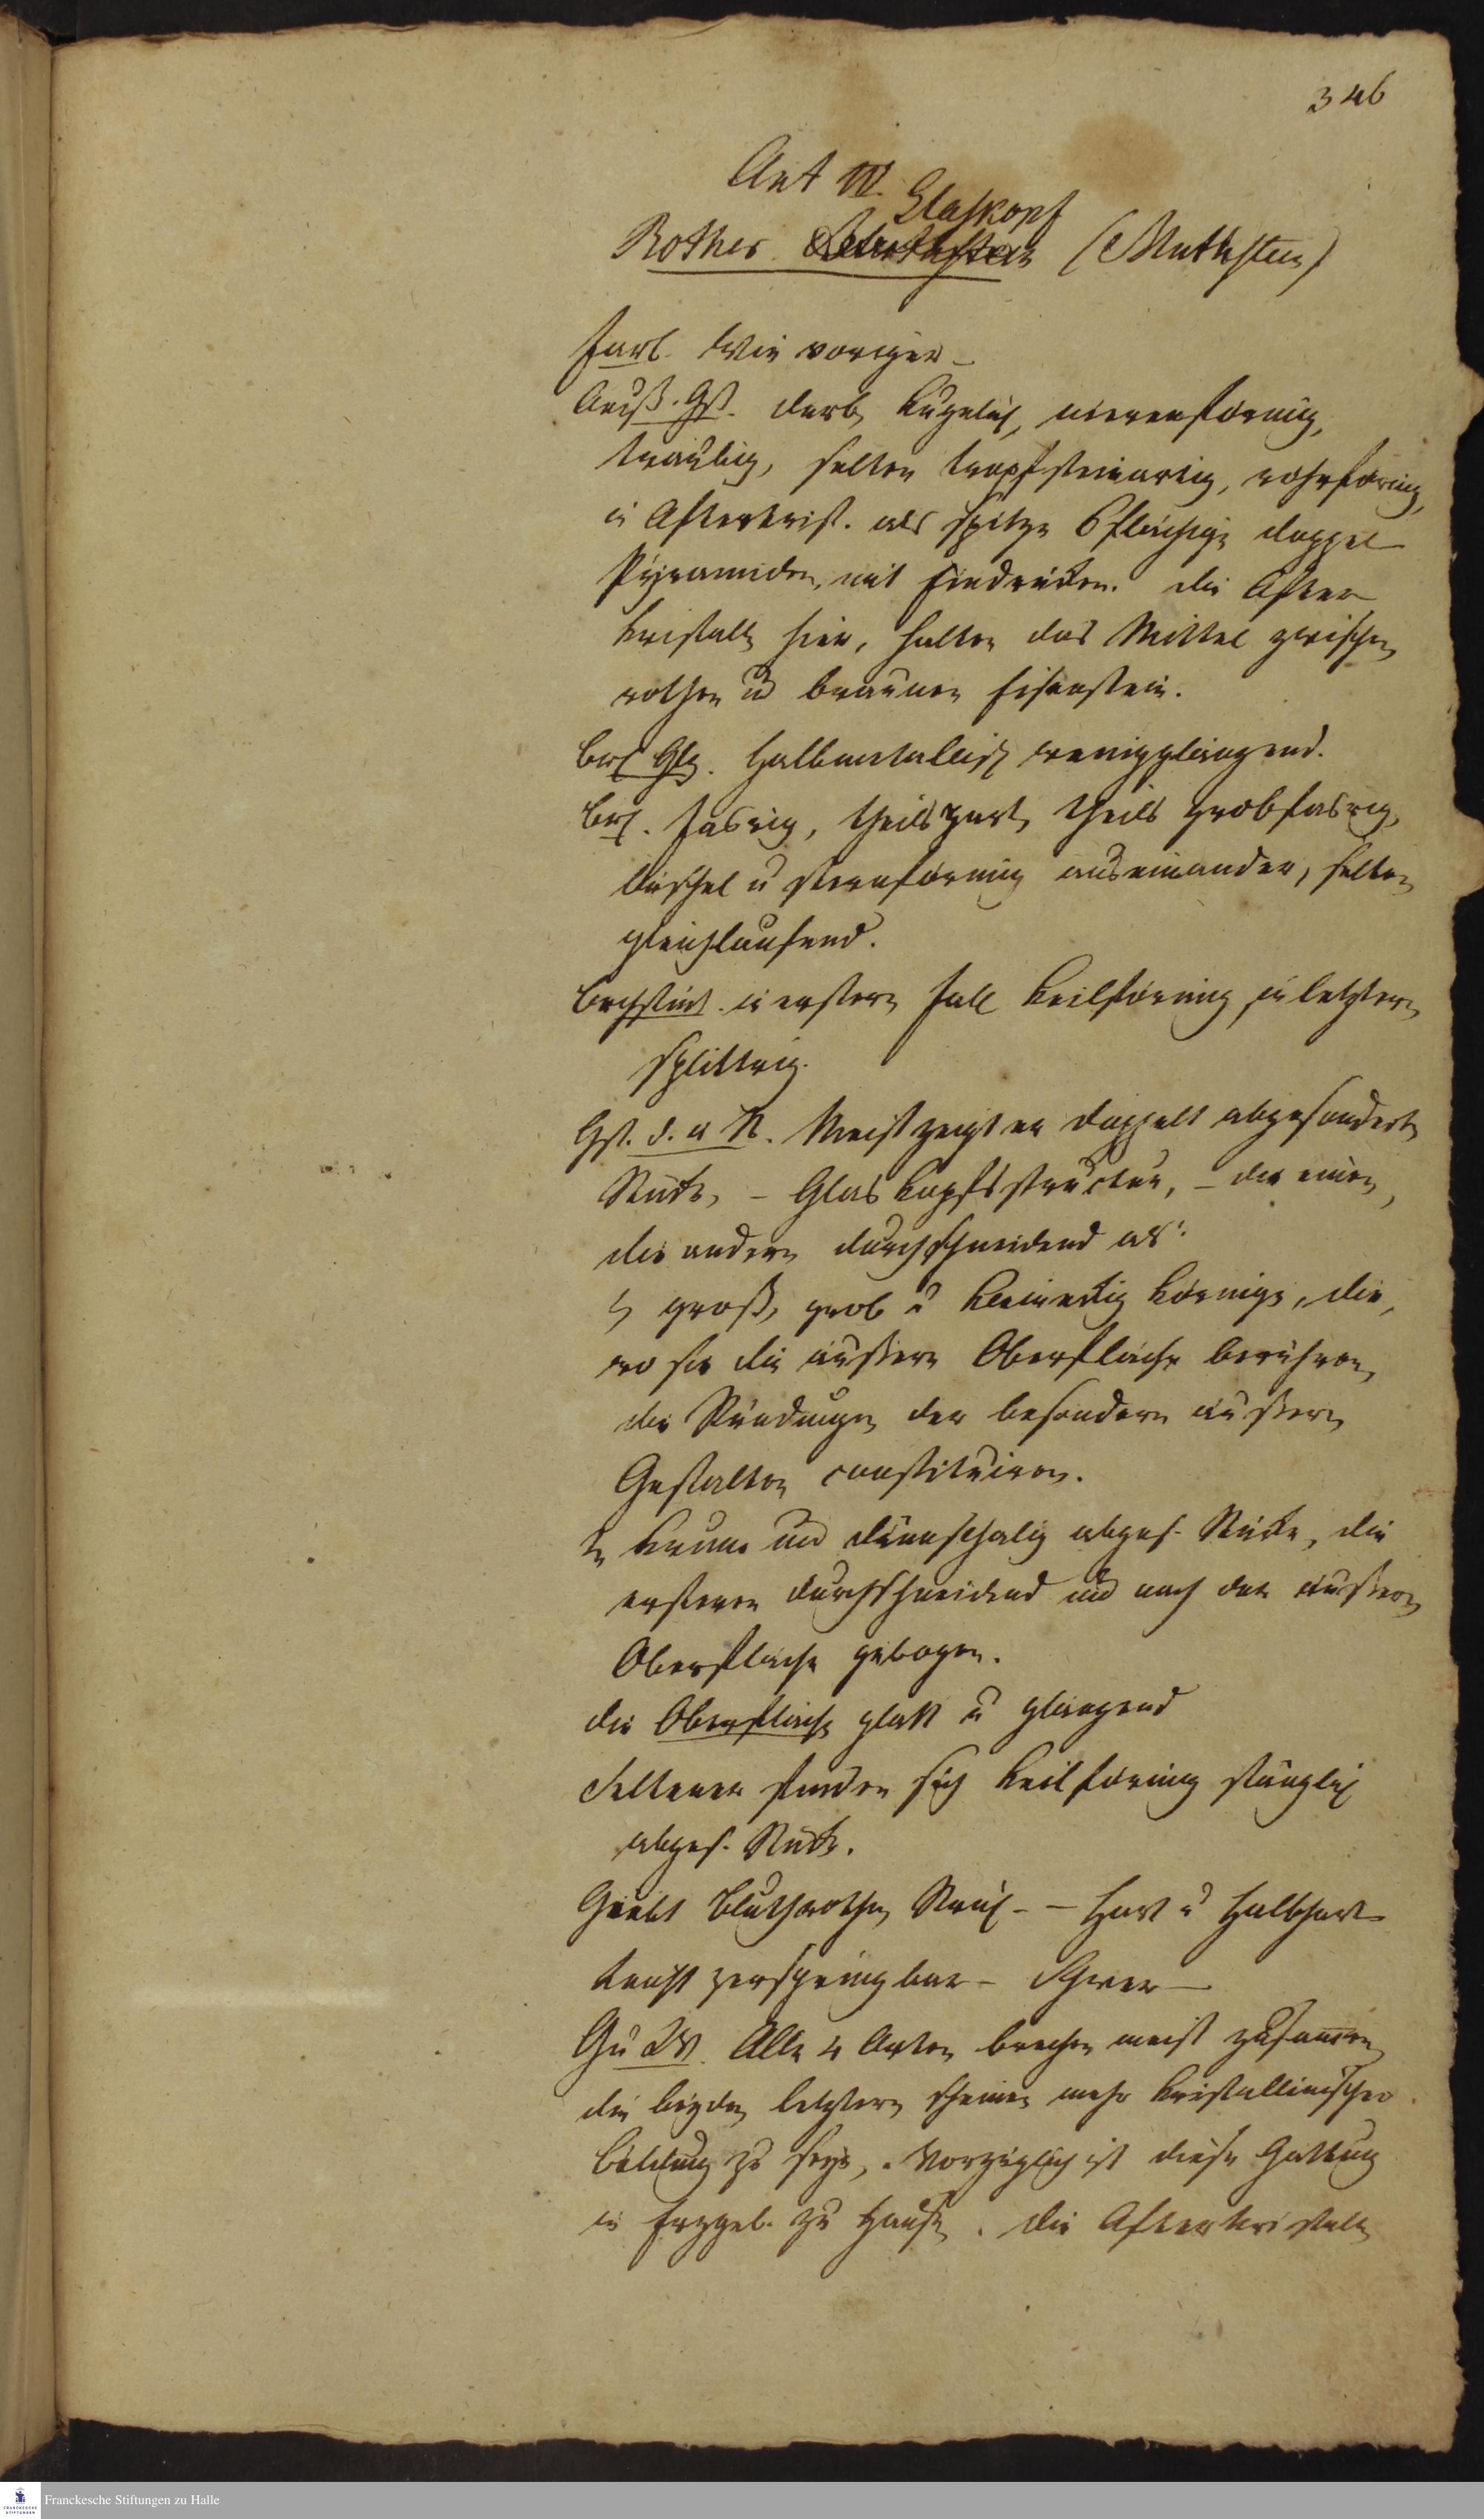 346
Art III.
Glaskopf
Rother Bluthstein (Bluthstein)
Farb. Wie voriger –
Aeuß. Gst. derb, kuglich, nierenförmig,
traubig, selten tropfsteinartig, röhrförmig,
in Afterkrist. als spitze 6flächige doppel
Pÿramiden, mit Eindrücken. die After
kristalle hier, halten das Mittel zwischen
rothen u braunen Eisenstein.
Brch Glz. Halbmetallisch wenigglänzend.
Brch. Fasrig, theils zart, theils grobfasrig,
büschel u sternförmig auseinander, selten
gleichlaufend.
Brchstück. in erstern Fall keilförmig, in letztern
splittrig.
Gst. d. a St. Meist zeigt er doppelt abgesonderte
Stücke, – Glaskopfsstructur, – die einen,
die andern durchschneidend als:
1, groß, grob u kleineckig körnige, die,
wo sie die äußere Oberfläche berühren,
die Ründungen der besondern äußern
Gestalten constituiren.
2, krumm und dünnschalig abges. Stücke, die
ersteren durchschneidend und nach der äußern
Oberfläche gebogen.
die Oberfläche glatt u glänzend
Seltener finden sich keilförmig stänglich
abges. Stücke.
Giebt bluthrothen Strich – – Hart u halbhart
leicht zerspringbar – Schwer –
Gu W. Alle 4 Arten brechen meist zusammen
die beyden letztern scheinen mehr kristallinischer
Bildung zu seyn, . Vorzüglich ist diese Gattung
in Erzgeb. zu Hause . die Afterkristalle
Franckesche Stiftungen zu Halle